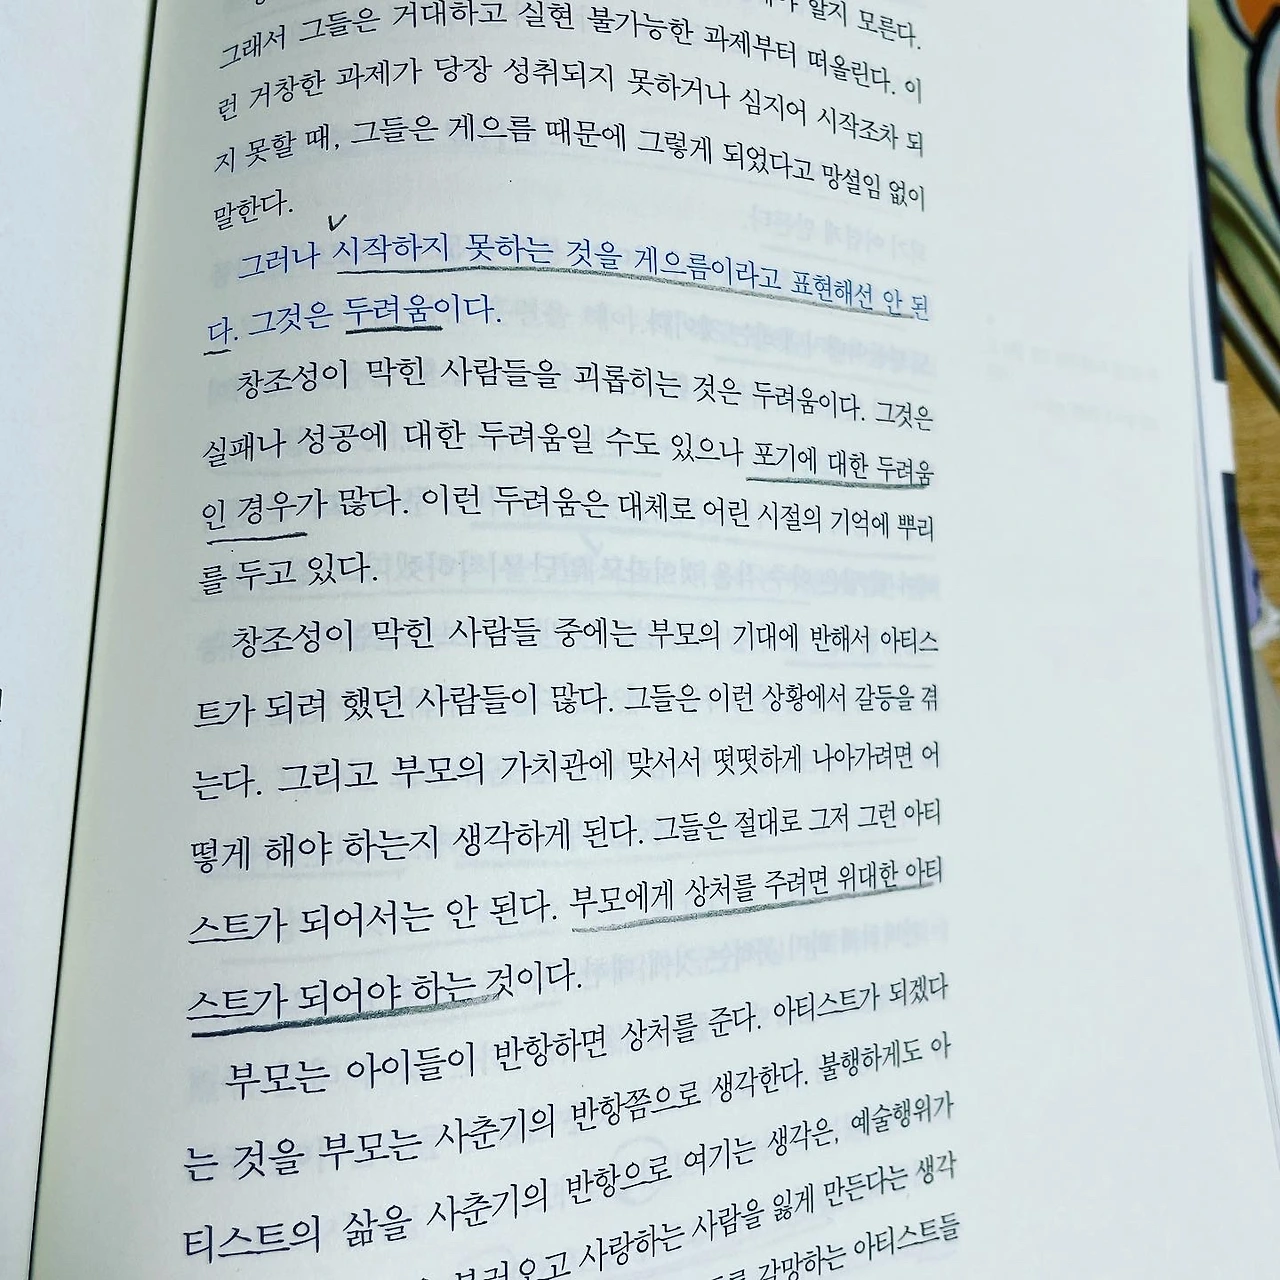 알지 모른다.
그래서 그들은 거대하고 실현 불가능한 과제부터 떠올린다. 이
런 거창한 과제가 당장 성취되지 못하거나 심지어 시작조차 되
지 못할 때, 그들은 게으름 때문에 그렇게 되었다고 망설임 없이
말한다.
그러나 시작하지 못하는 것을 게으름이라고 표현해선 안 된
다. 그것은 두려움이다.
창조성이 막힌 사람들을 괴롭히는 것은 두려움이다. 그것은
실패나 성공에 대한 두려움일 수도 있으나 포기에 대한 두려움
인 경우가 많다. 이런 두려움은 대체로 어린 시절의 기억에 뿌리
를 두고 있다.
창조성이 막힌 사람들 중에는 부모의 기대에 반해서 아티스
트가 되려 했던 사람들이 많다. 그들은 이런 상황에서 갈등을 겪
는다. 그리고 부모의 가치관에 맞서서 떳떳하게 나아가려면 어
떻게 해야 하는지 생각하게 된다. 그들은 절대로 그저 그런 아티
스트가 되어서는 안 된다. 부모에게 상처를 주려면 위대한 아티
스트가 되어야 하는 것이다.
부모는 아이들이 반항하면 상처를 준다. 아티스트가 되겠다
는 것을 부모는 사춘기의 반항쯤으로 생각한다. 불행하게도 아
티스트의 삶을 사춘기의 반항으로 여기는 생각은, 예술행위가
불러오고 사랑하는 사람을 잃게 만든다는 생각
갈망하는 아티스트들